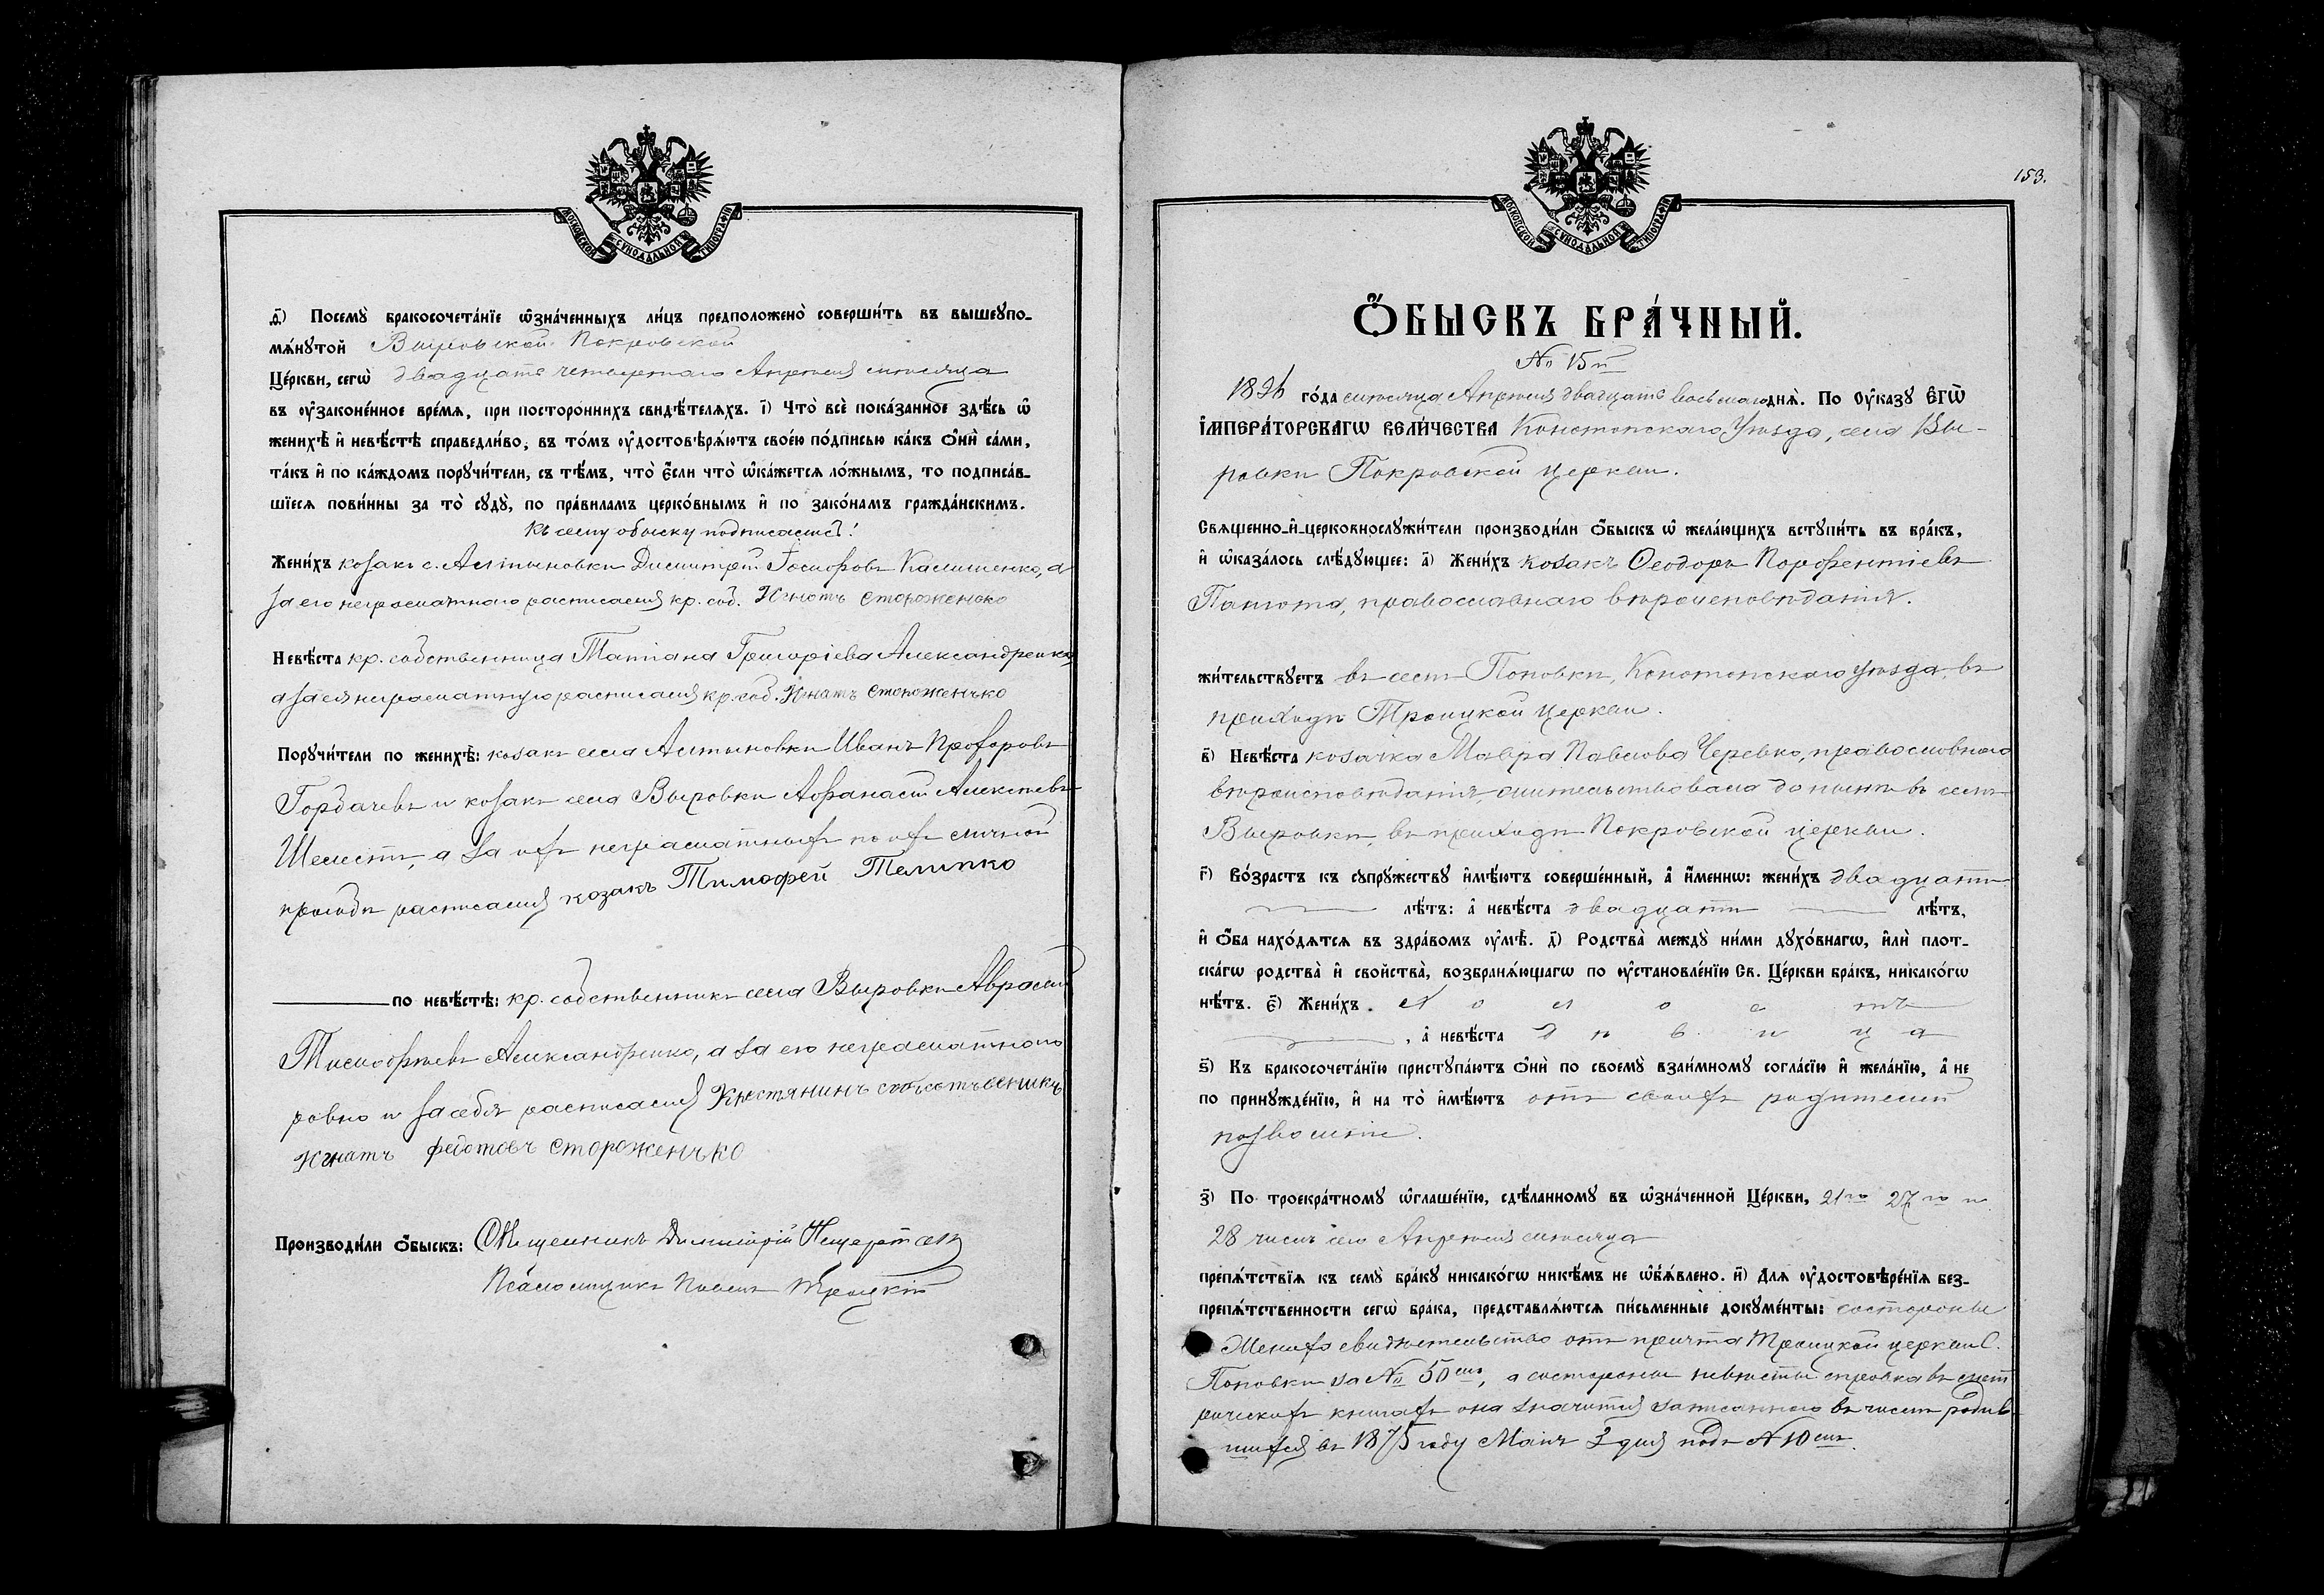 МОСКОВСКОЙ СѴНОДАЛЬНОЙ ТИПОГРАФІИ
д҃) Посемꙋ̀ бракосочета́нїе ѡ҆зна́ченныхъ ли́цъ предположено̀ соверши́ть въ вышеꙋпо-
мѧ́нꙋтой Выровской Покровской
Це́ркви, сегѡ̀ двадцать четвертаго Апрѣля мѣсяца
въ ᲂу҆зако́ненное вре́мѧ, при посторо́ннихъ свидѣ́телѧхъ. і҃) Что̀ всѐ пока́занное здѣ́сь ѡ҆
женихѣ̀ и҆ невѣ́стѣ справедли́во, въ то́мъ ᲂу҆достовѣрѧ́ютъ свое́ю по́дписью ка́къ ѻ҆нѝ са́ми,
та́къ и҆ по ка́ждомъ порꙋчи́тели, съ тѣ́мъ, что̀ є҆́сли что̀ ѡ҆ка́жетсѧ ло́жнымъ, то подписа́в-
шїесѧ пови́нны за то̀ сꙋдꙋ̀, по пра́виламъ церко́внымъ и҆ по зако́намъ гражда́нскимъ.
Къ сему обыску подписались:
Жени́хъ козакъ с. Алтыновки Димитрій Іосифовъ Калишенко, а
за его неграмотнаго расписался кр. соб. Игнатъ Стороженько
Невѣ́ста кр. собственница Татіана Григоріева Александренкова,
а за ея неграмотную расписался кр. соб. Игнатъ Стороженько
Порꙋчи́тели по женихѣ̀: козакъ села Алтыновки Иванъ Прохоровъ
Горбачевъ и козакъ села Выровки Афанасій Алексѣевъ
Шелестъ, а за ихъ неграматныхъ по ихъ личной
прозьбѣ расписался козакъ Тимофей Телипко
по невѣ́стѣ: кр. собственникъ села Выровки Аврамій
Тимофѣевъ Александренко, а за его неграматнаго
ровно и за себя расписался Крестянинъ собсотьвеникъ
Игнатъ федотовъ Стороженько
Производи́ли ѻ҆́быскъ: Священникъ Димитрій
Псаломщикъ Павелъ Троицкій
153.
МОСКОВСКОЙ СѴНОДАЛЬНОЙ ТИПОГРАФІИ
Ѻ҆́БЫСКЪ БРА́ЧНЫЙ.
№ 15й
1896 го́да мѣсяца Апрѣля двадцать восьмаго днѧ̀. По Оу҆ка́зꙋ Є҆гѡ̀
І҆мпера́торскагѡ Вели́чества Конотопскаго Уѣзда, села Вы-
ровки Покровской церкви.
Свѧще́нно-и҆-церковнослꙋжи́тели производи́ли ѻ҆́быскъ ѡ҆ жела́ющихъ встꙋпи́ть въ бра́къ,
и҆ ѡ҆каза́лось слѣ́дꙋющее: а҃) Жени́хъ козакъ Ѳеодоръ Порфентіевъ
православнаго вѣроисповѣданія.
жи́тельствꙋетъ въ селѣ Поповки, Конотопскаго уѣзда, въ
приходѣ Троицкой церкви.
в҃) Невѣ́ста козачка Мавра Павлова Черевко, православнаго
вѣроисповѣданія, жительствовала донынѣ въ селѣ
Выровки, въ приходѣ Покровской церкви.
г҃) Во́зрастъ къ сꙋпрꙋ́жествꙋ и҆мѣ́ютъ соверше́нный, а҆ и҆́меннѡ: жени́хъ двадцати
лѣ́тъ: а҆ невѣ́ста двадцати лѣ́тъ,
и҆ ѻ҆́ба нахо́дѧтсѧ въ здра́вомъ ᲂу҆мѣ̀. д҃) Родства̀ междꙋ̀ ни́ми дꙋхо́внагѡ, и҆лѝ плот-
ска́гѡ родства̀ и҆ свойства̀, возбранѧ́ющагѡ по ᲂу҆становле́нїю Св. Це́ркви бра́къ, никако́гѡ
нѣ́тъ. є҃) Жени́хъ Холостъ
, а҆ невѣ́ста дѣвица
ѕ҃) Къ бракосочета́нїю пристꙋпа́ютъ ѻ҆нѝ по своемꙋ̀ взаи́мномꙋ согла́сїю и҆ жела́нїю, а҆ не
по принꙋжде́нїю, и҆ на то̀ и҆мѣ́ютъ отъ своихъ родителей
позволеніе.
з҃) По троекра́тномꙋ ѡ҆глаше́нїю, сдѣ́ланномꙋ въ ѡ҆зна́ченной Це́ркви, 21го 27го и
28 чиселъ сего Апрѣля мѣсяца
препѧ́тствїѧ къ семꙋ̀ бра́кꙋ никако́гѡ никѣ́мъ не ѡ҆б̾ѧ́влено. и҃) Длѧ ᲂу҆достовѣре́нїѧ без-
препѧ́тственности сегѡ̀ бра́ка, представлѧ́ютсѧ пи́сьменные докꙋме́нты: состороны
Жениха свидѣтельство отъ причта Троицкой церкви С.
Поповки за № 50мъ, а состороны невѣсты справка въ метри
рическихъ книгахъ она значится записанною въ числѣ родив
шихся въ 1875 году Маія 3 дня подъ № 10мъ.